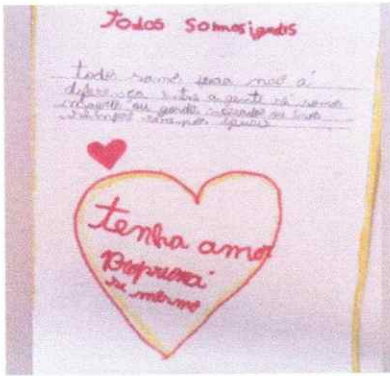 Todos somos iguais
todos somos não á
diferença entre a gente se somos
ou gordo ou
sempre somos iguais
tenha amor
Proprioná
si mesmo